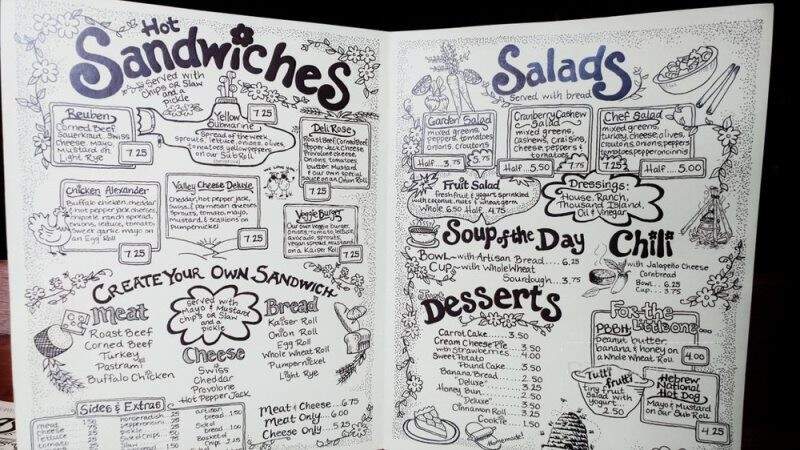 Hot
Sandwiches
Served with
Chips or Slaw
and a
pickle
Reuben
Corned Beef
Sauerkraut, Swiss
Cheese, Mayo
Mustard on
Light Rye
7.25
Yellow
Submarine
7.25
Spread of the week,
sprouts, lettuce, onions, olives,
tomatoes, yellow peppers
on our Sub Roll
Deli Rose
Roast Beef, Corned Beef
Pepper Jack Cheese
Provolone cheese,
Onions, tomatoes
butter, Mustard
& our own special
sauce on an Onion Roll
7.25
Chicken Alexander
Buffalo chicken, cheddar
& hot pepper jack cheeses
chipotle ranch spread,
onions, lettuce, tomato
sweet garlic mayo on
an Egg Roll
7.25
Valley Cheese Deluxe
Cheddar, hot pepper jack,
swiss, & parmesan cheeses
Sprouts, tomato, mayo,
mustard, & scallions on
Pumpernickel
7.25
Veggie Burger
Our own veggie burger
onions, tomato, lettuce,
avocado, sprouts,
vegan spread, mustard
on a Kaiser Roll
7.25
Create Your Own Sandwich
Meat
Roast Beef
Corned Beef
Turkey
Pastrami
Buffalo Chicken
Served with
Mayo & Mustard
chips or Slaw
and a
pickle
Cheese
Swiss
Cheddar
Provolone
Hot Pepper Jack
Bread
Kaiser Roll
Onion Roll
Egg Roll
Whole Wheat Roll
Pumpernickel
Light Rye
Sides & Extras
meat
cheese
lettuce
tomato
horseradish .25
pepperoncinis
pickle
Side of Chips .75
Slaw
artisan
bread 1.50
Side of
bread
Basket of
Chips
Meat & Cheese...6.75
Meat Only...6.00
Cheese Only...5.25
Salads
Served with bread
Garden Salad
mixed greens,
peppers, tomatoes
onions, croutons
Half...3.75 5.75
Cranberry Cashew
Salad
mixed greens,
Cashews, Craisins,
Cheese, peppers &
tomatoes
Half...5.50 7.75
Chef Salad
mixed greens,
turkey, cheese, olives,
croutons, onions, peppers
tomatoes, pepperoncinnis
7.25 Half...5.00
Fruit Salad
fresh fruit & yogurt sprinkled
with coconut, nuts & wheat germ
Whole 6.50 Half 4.75
Dressings:
House, Ranch,
Thousand Island,
Oil & Vinegar
Soup of the Day
Bowl - with Artisan Bread... 6.25
Cup - with Whole Wheat
Sourdough...3.75
Chili
with Jalapeño Cheese
Cornbread
Bowl.. 6.25
Cup... 3.75
Desserts
Carrot Cake.....3.50
Cream Cheese Pie...3.50
with Strawberries...4.00
Sweet Potato
Pound Cake.....3.50
Banana Bread.....2.50
"Deluxe".....3.25
Honey Bun.....2.50
"Deluxe".....3.25
Cinnamon Roll.....3.25
Cookie.....1.50
Homemade!
For the
Little one...
PBBH peanut
butter
banana & honey on
a Whole Wheat Roll
4.00
Tutti
frutti
tiny fruit
salad with
yogurt
2.50
Hebrew
National
Hot Dog
Mayo & Mustard
on our Sub Roll
4.25